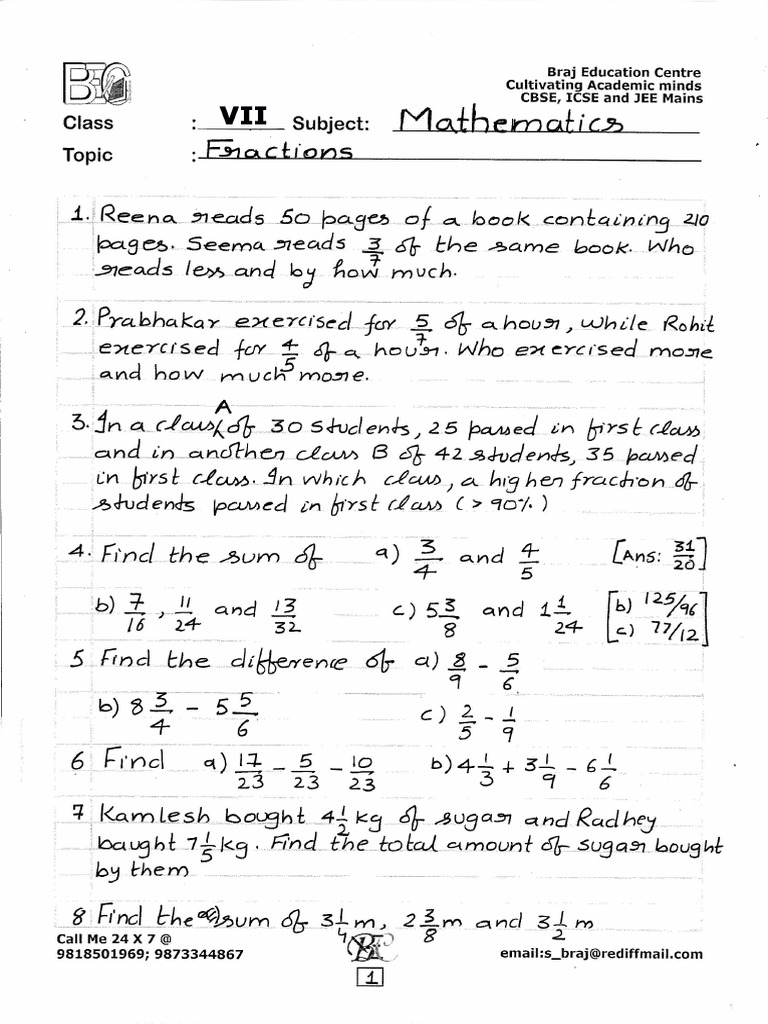 BEC
Braj Education Centre
Cultivating Academic minds
CBSE, ICSE and JEE Mains
Class : VII Subject: Mathematics
Topic : Fractions
1. Reena reads 50 pages of a book containing 210
pages. Seema reads 3/7 of the same book. Who
reads less and by how much.
2. Prabhakar exercised for 5/7 of a hour, while Rohit
exercised for 4/5 of a hour. Who exercised more
and how much more.
3. In a class A of 30 students, 25 passed in first class
and in another class B of 42 students, 35 passed
in first class. In which class, a higher fraction of
students passed in first class (>90%)
4. Find the sum of a) 3/4 and 4/5 [Ans: 31/20]
b) 7/16, 11/24 and 13/32 c) 5 3/8 and 1 1/24 [b) 125/96 c) 77/12]
5 Find the difference of a) 8/9 - 5/6
b) 8 3/4 - 5 5/6 c) 2/5 - 1/9
6 Find a) 17/23 - 5/23 - 10/23 b) 4 1/3 + 3 1/9 - 6 1/6
7 Kamlesh bought 4 1/2 kg of sugar and Radhey
baught 7 1/5 kg. Find the total amount of sugar bought
by them
8 Find the sum of 3 1/4 m, 2 3/8 m and 3 1/2 m
Call Me 24 X 7 @
9818501969; 9873344867
BEC
email:s_braj@rediffmail.com
1